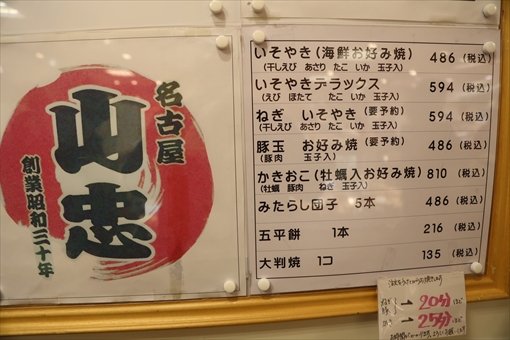 名古屋
山忠
創業昭和三十年
いそやき(海鮮お好み焼) 486 (税込)
(干しえび あさり たこ いか 玉子入)
いそやきデラックス 594 (税込)
(えび ほたて たこ いか 玉子入)
ねぎ いそやき(要予約) 594 (税込)
(干しえび あさり たこ いか 玉子入)
豚玉 お好み焼(要予約) 486 (税込)
(豚肉 玉子入)
かきおこ(牡蠣入お好み焼) 810 (税込)
(牡蠣 豚肉 ねぎ 玉子入)
みたらし団子 5本 486 (税込)
五平餅 1本 216 (税込)
大判焼 1コ 135 (税込)
→ 20分
→ 25分